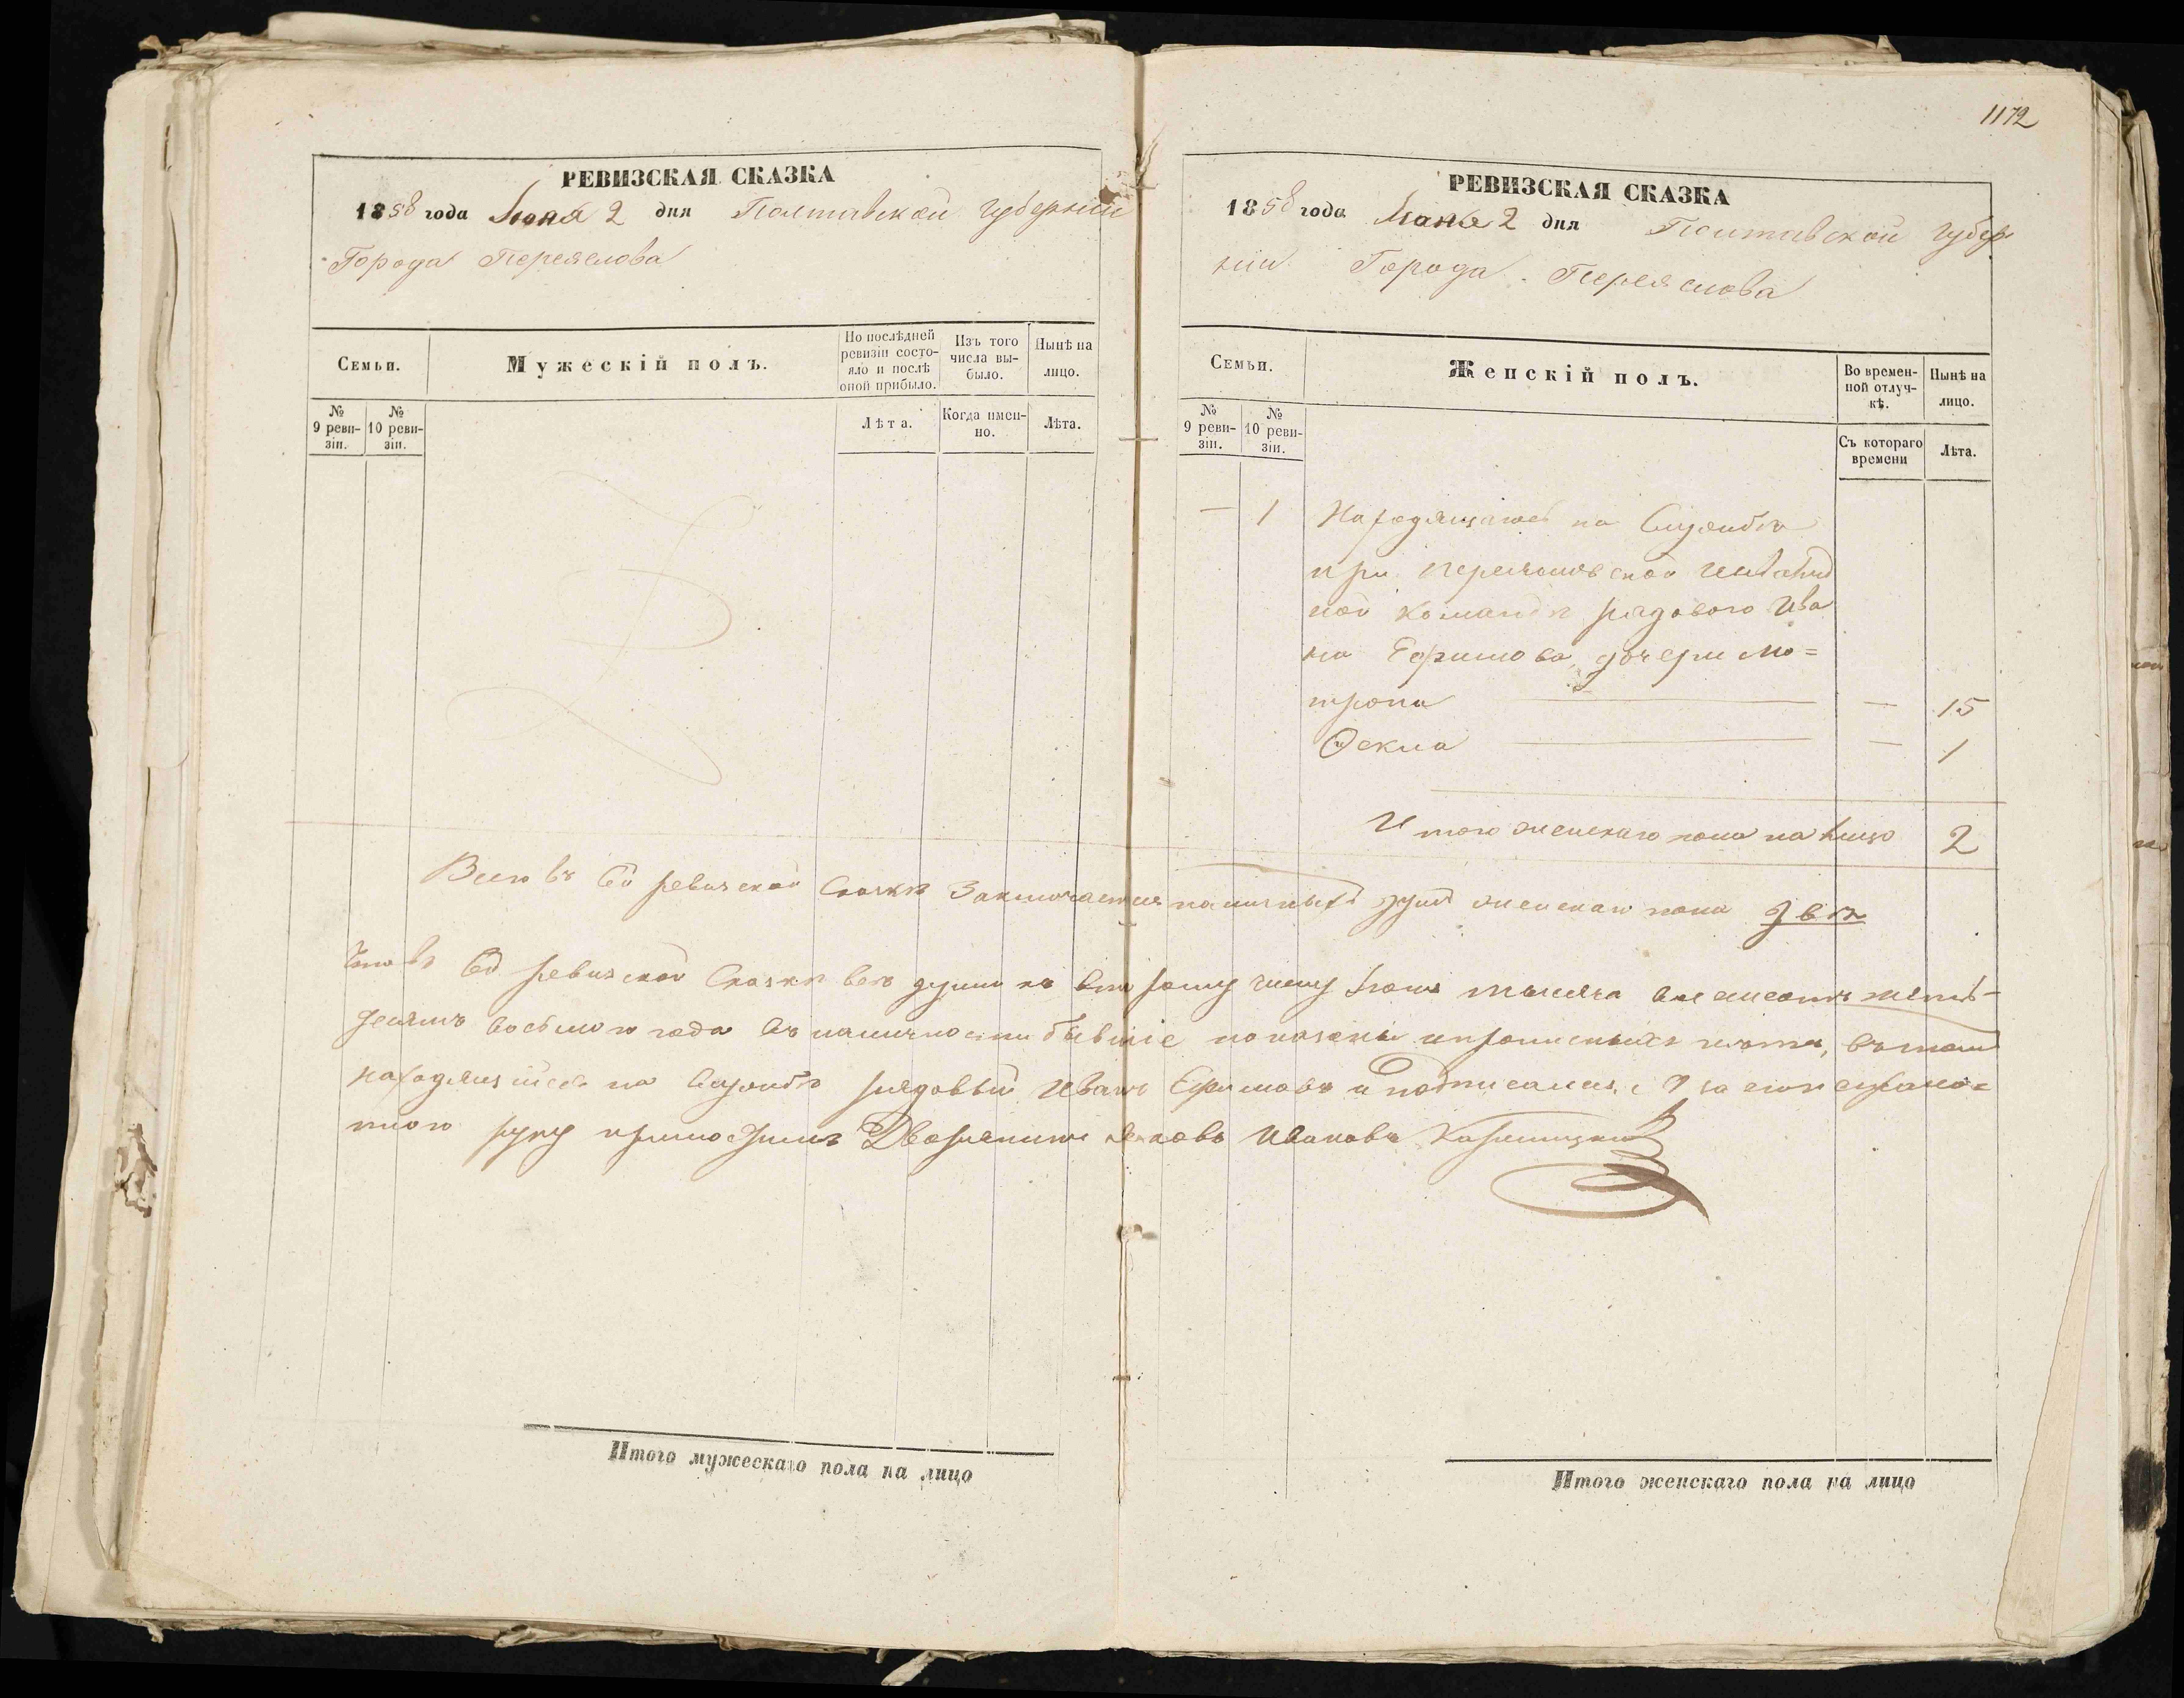 1172
РЕВИЗСКАЯ СКАЗКА
1858 года Іюня 2 дня Полтавской губерніи
Города Переяслова
Семьи.
Мужескій полъ.
По послѣдней ревизіи состояло и послѣ оной прибыло.
Изъ того числа выбыло.
Нынѣ на лицо.
№ 9 ревизіи.
№ 10 ревизіи.
Лѣта.
Когда именно.
Лѣта.
Итого мужескаго пола на лицо
РЕВИЗСКАЯ СКАЗКА
1858 года Іюня 2 дня Полтавской губер
ніи Города Переяслова
Семьи.
Женскій полъ.
Во временной отлучкѣ.
Нынѣ на лицо.
№ 9 ревизіи.
№ 10 ревизіи.
Съ котораго времени
Лѣта.
— 1 Находящагося на Службѣ
при Переяславской Инвалид
ной командѣ рядового Ива
на Ефимова, дочери Мо=
трона — 15
Фекла — 1
Итого женскаго пола на лицо 2
Всего въ сей ревизской Сказкѣ Заключается наличныхъ душъ женскаго пола двѣ
Что въ сей ревизской Сказкѣ всѣ души ко второму числу Іюня тысяча восемсотъ пятъ-
десятъ восьмого года въ наличности бывшіе показаны, въ томъ
находящійся на Службѣ рядовый Иванъ Ефимовъ и подписался, а за его неграмо=
тного руку приложилъ Дворянинъ Яковъ Ивановъ
Итого женскаго пола на лицо